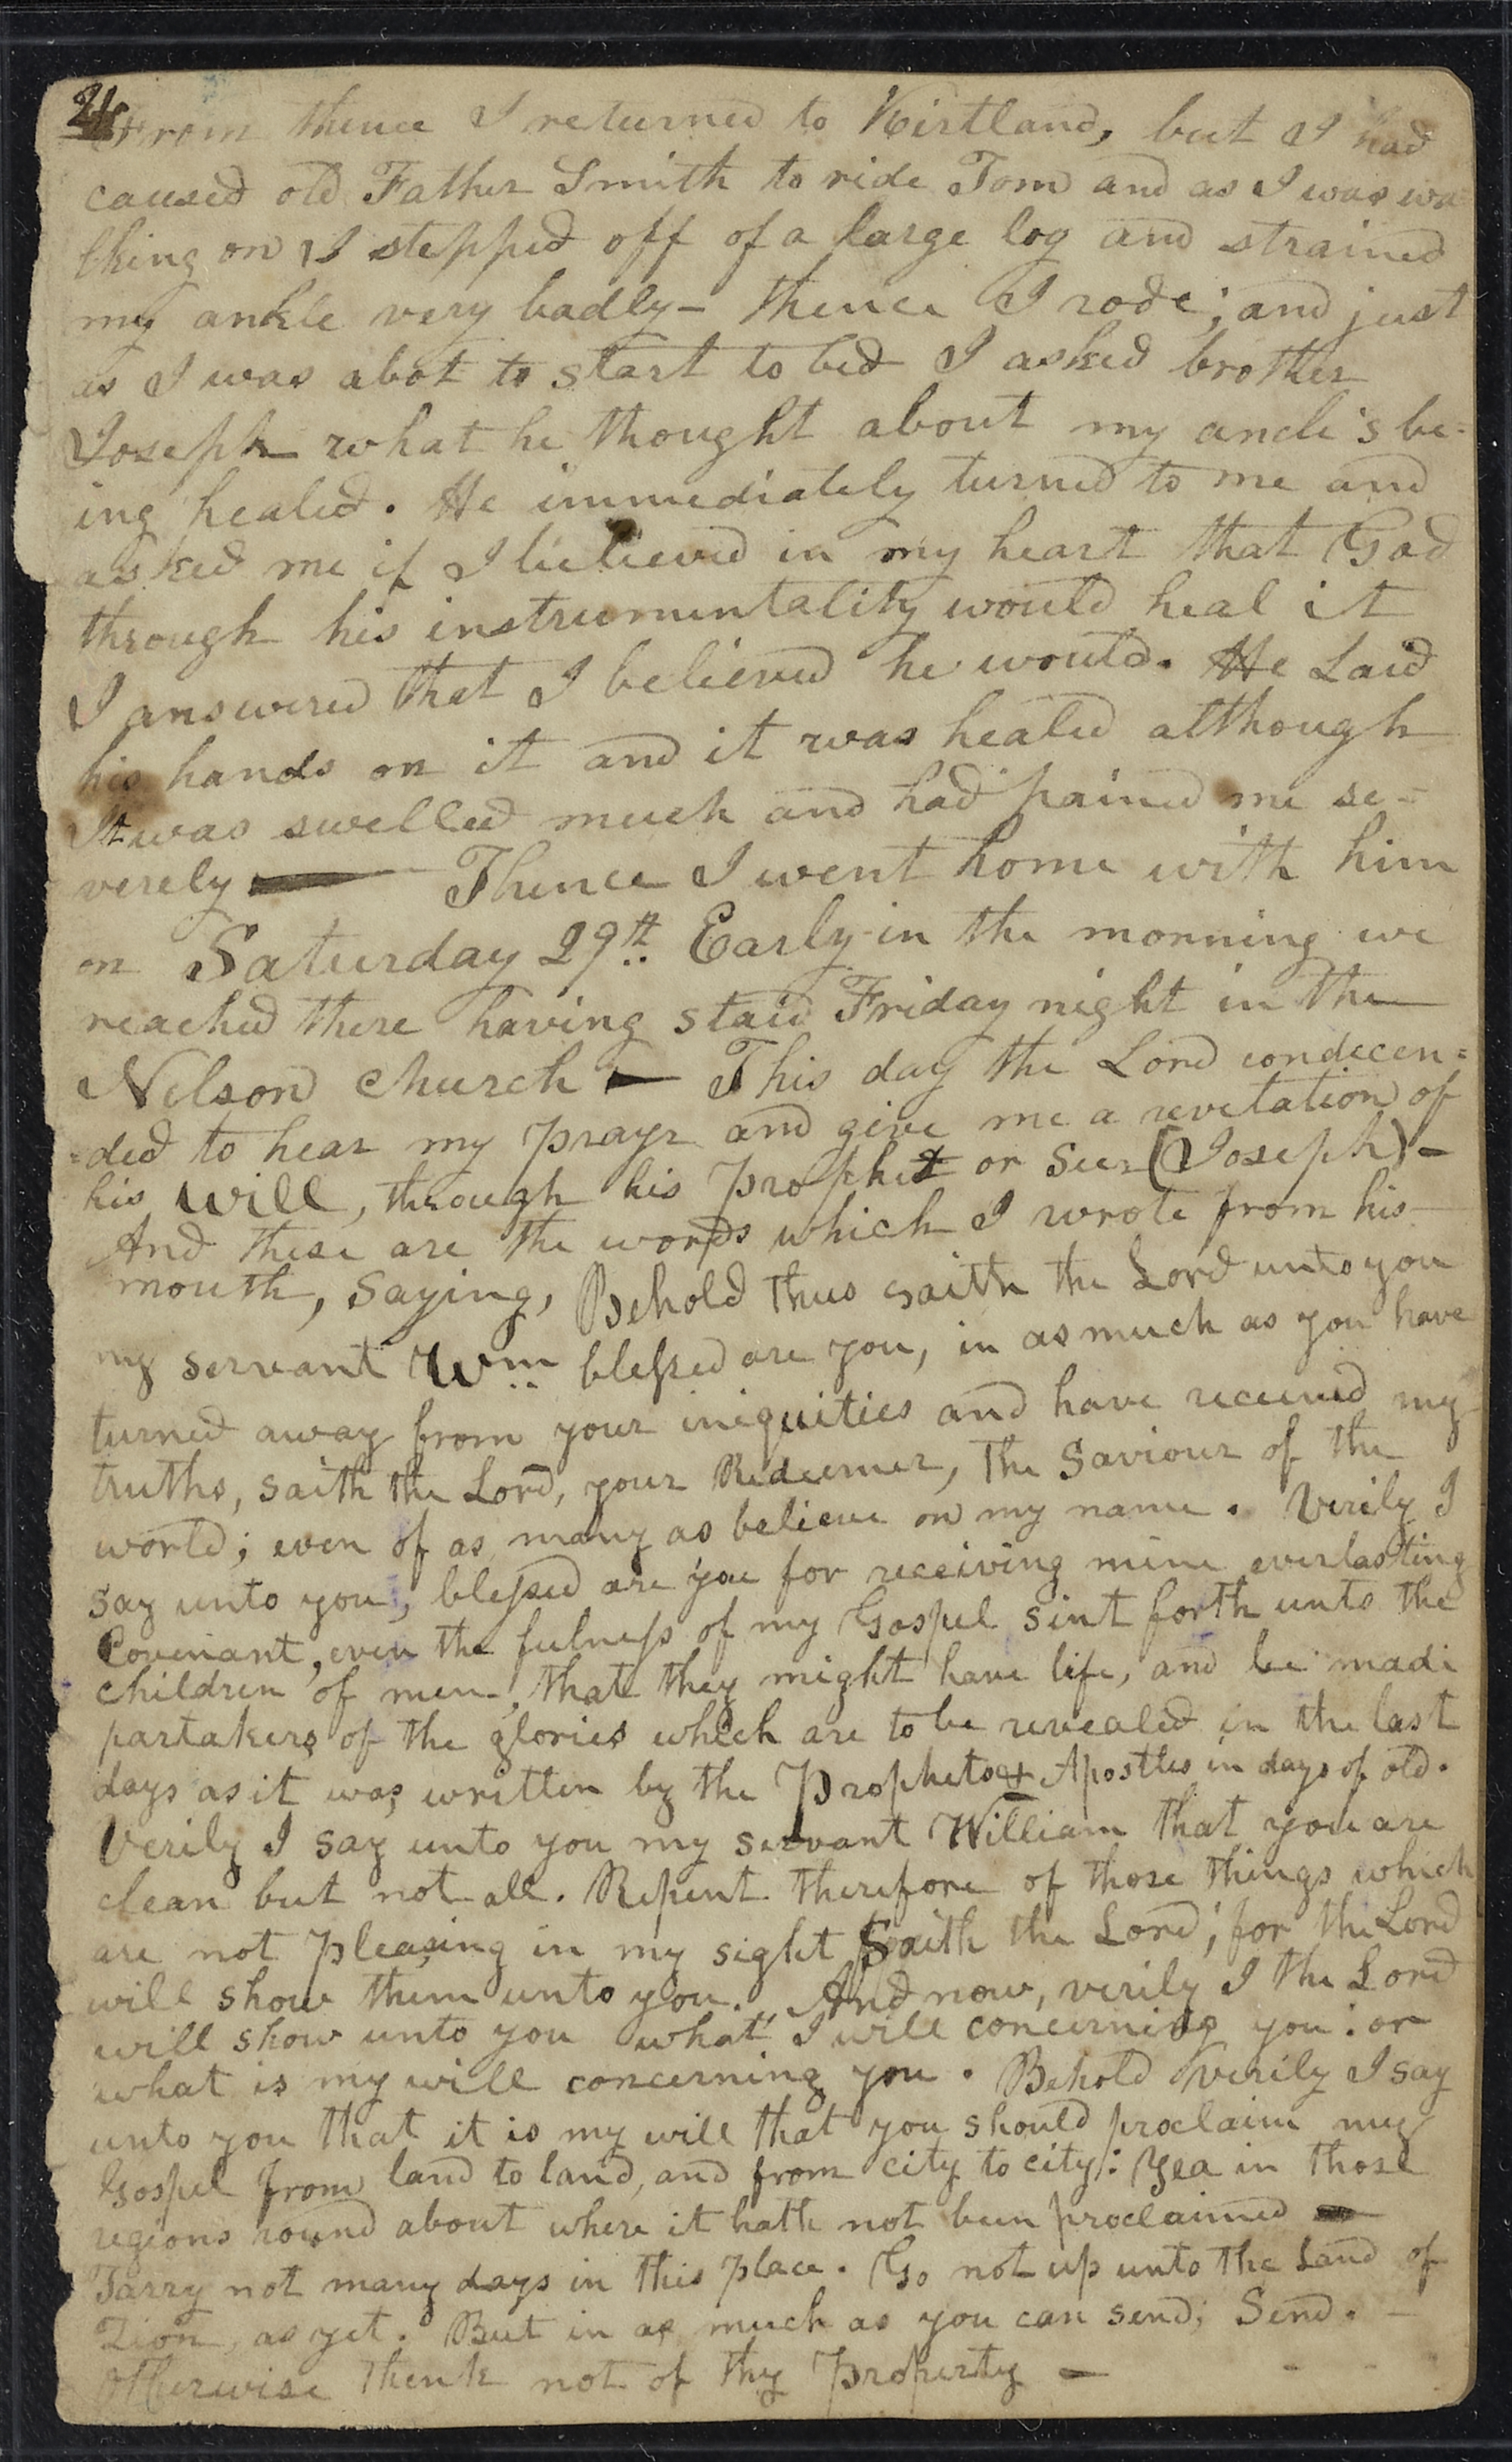 24
From thence I returned to Kirtland, but I had
caused old Father Smith to ride Tom and as I was wa
lking on I stepped off of a large log and strained
my ankle very badly— thence I rode; and just
as I was abot to start to bed I asked brother
Joseph what he thought about my ancle's be=
ing healed. He immediately turned to me and
asked me if I believed in my heart that God
through his instrumentality would heal it
I answered that I believed he would. He Laid
his hands on it and it was healed although
It was swelled much and had pained me se=
verely — Thence I went home with him
on Saturday 29th. Early in the morning we
reached there having staid Friday night in the
Nelson church — This day the Lord condecen=
=ded to hear my prayr and give me a revelation of
his will, through his prophet or seer (Joseph)—
And these are the words which I wrote from his
mouth, saying, Behold thus saith the Lord unto you
my servant Wm.. blessed are you, in as much as you have
turned away from your iniquities and have received my
truths, saith the Lord, your Redeemer, the Saviour of the
world; even of as many as believe on my name. Verily I
say unto you, blessed are you for receiving mine everlasting
Covenant, even the fulness of my Gospel sent forth unto the
children of men, that they might have life, and be made
partakers of the glories which are to be revealed in the last
days as it was written by the Prophets & Apostles in days of old.
Verily I say unto you my servant William that you are
clean but not all. Repent therefore of those things which
are not pleasing in my sight Saith the Lord; for the Lord
will show them unto you. And now, verily I the Lord
will show unto you what I will concerning you: or
what is my will concerning you. Behold Verily I say
unto you that it is my will that you should proclaim my
Gospel from land to land, and from city to city: Yea in those
regions round about where it hath not been proclaimed —
Tarry not many days in this place. Go not up unto the Land of
Zion, as yet. But in as much as you can send; Send. —
Otherwise think not of thy property —